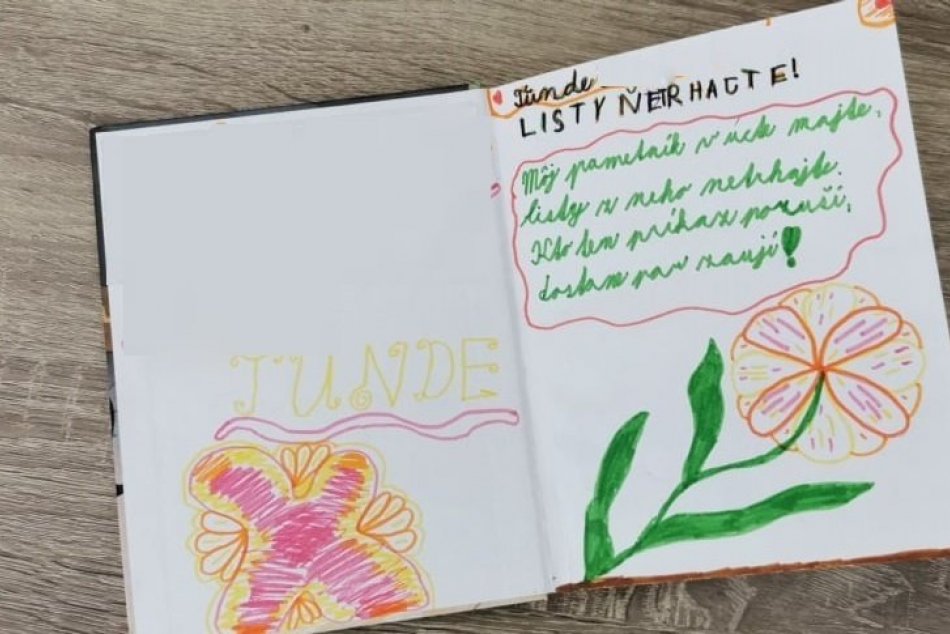 TUNDE
Tünde
LISTY NETRHAJTE!
Môj pametník v úcte majte,
listy z neho netrhajte.
Kto ten príkaz poruší,
dostane par zauji!